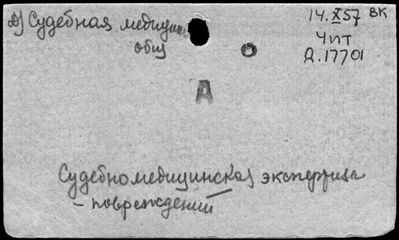 Судебная медицина
общ
14.X57 ВК
Чпт
Д.17701
А
Судебномедицинская экспертиза
- повреждений